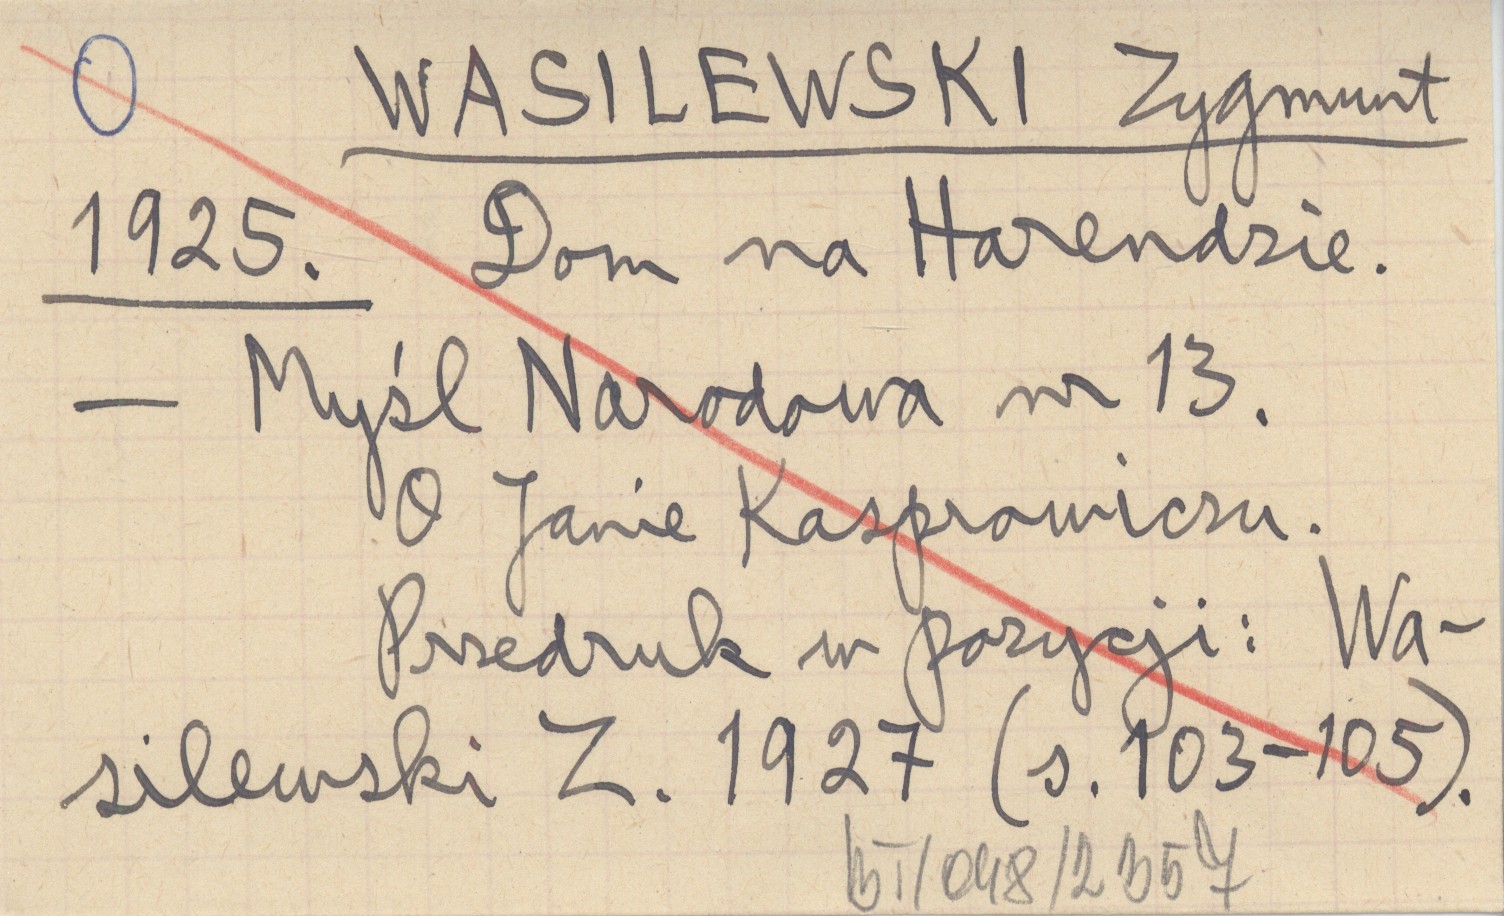 O WASILEWSKI Zygmunt
1925. Dom na Harendzie.
— Myśl Narodowa nr 13.
O Janie Kasprowiczu.
Przedruk w pozycji: Wa-
silewski Z. 1927 (s. 103-105).